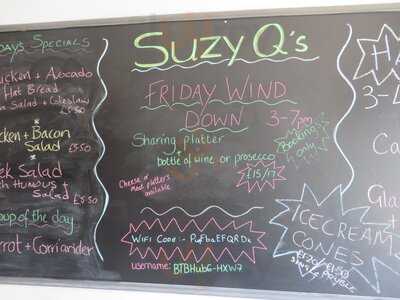 day's Specials
icken + Avocado
Flat Bread
Salad + Coleslaw
£5.50
ken + Bacon
Salad £5.50
ek Salad
th Humous +
Salad £5.50
oup of the day
rrot + Corriander
Suzy Q's
Friday Wind
Down 3-7pm
Sharing platter
* bottle of wine or prosecco
Booking
only
£15/17
Cheese or
Meat platters
available
WiFi Code:-
username:- BTBHub6-HXW7
3-4
Ca
Gla
+
Icecream
Cones
£1.20/£1.50